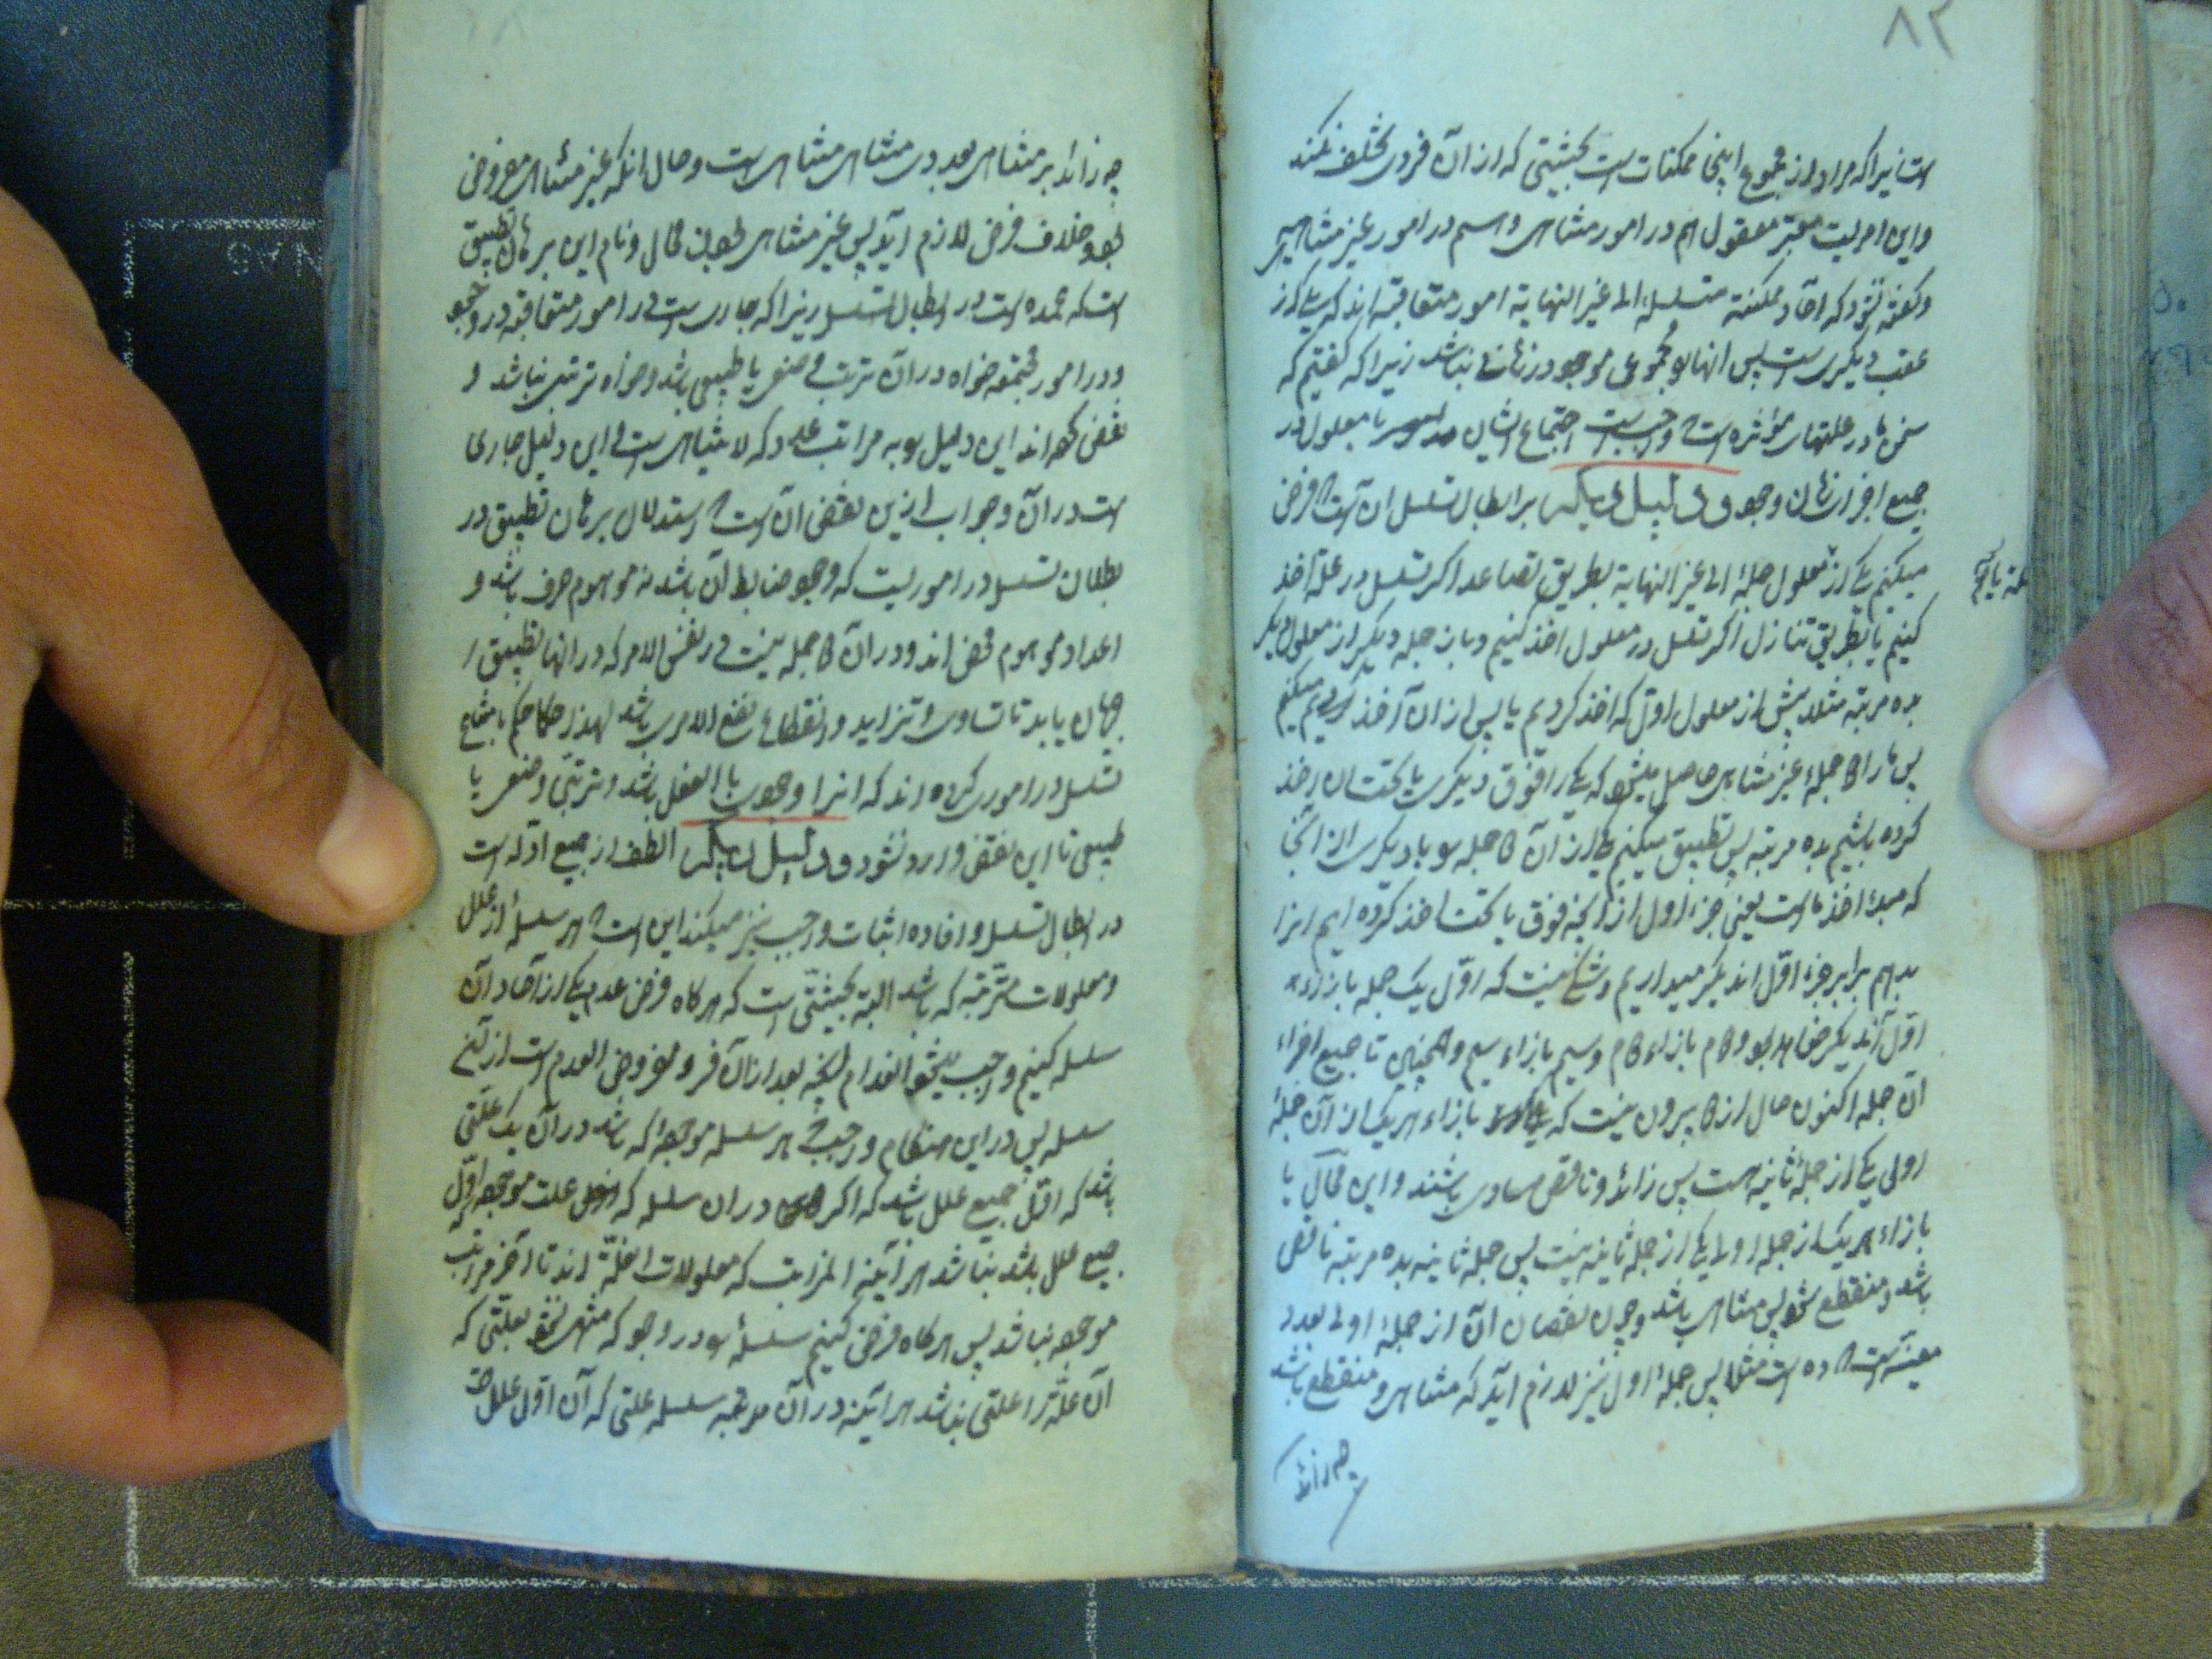 ۸۲
است زیرا که مراد از مجموع اینجا ممکنات است بحیثیتی که از آن فردی تخلف نکند
و این امریست معتبر معقول هم در امور متناهی و هم در امور غیر متناهی
و گفته نشود که آحاد ممکنه متسلسله الی غیر النهایة امور متعاقبه اند که یکی از
عقب دیگری است پس انها بوجودی موجود در زمانی نباشد زیرا که گفتیم که
سخن ما در علتهای مؤثره است و واجب است اجتماع ایشان با معلول در
جمیع اجزاء زمان وجود و دلیل دیگر بر ابطال تسلسل آن است که فرض
میکنیم یکی از معلول جملهٔ الی غیر النهایة بطریق تصاعد اگر تسلسل در علة اخذ
کنیم یا بطریق تنازل اگر تسلسل در معلول اخذ کنیم و باز جمله دیگر از معلول دیگر
بده مرتبه مثلا پیش از معلول اول که اخذ کردیم یا پس از آن اخذ میکنیم
پس ما را دو جملهٔ غیر متناهی حاصل میشود که یکی را فوق دیگری یا تحت آن اخذ
کرده باشیم بده مرتبه پس تطبیق میکنیم یکی از آن دو جمله را با دیگری از آنجا
که مبدء اخذ ماست یعنی جزء اول از آنچه فوق یا تحت اخذ کرده ایم انرا
بدهم برابر جزء اول اندیگر میداریم و شکی نیست که اول یک جمله بازاء
اول آندیگر خواهد بود و دوم بازاء دوم و سیم بازاء سیم و همچنین تا جمیع اجزاء
آن جمله اکنون حال از دو بیرون نیست که بازاء هر یک از آن جملهٔ
اولی یکی از جملهٔ ثانیه هست پس زائد و ناقص مساوی باشند و این محال یا
بازاء هر یک از جمله اولی یکی از جمله ثانیه نیست پس جمله ثانیه بده مرتبه ناقص
باشد و منقطع شود پس متناهی باشد و چون نقصان آن از جملهٔ اولی بعدد
معینه است که ده است مثلا پس جملهٔ اول نیز لازم آید که متناهی و منقطع باشد
چه زائد
چه زائد بر متناهی بعددی متناهی متناهی است و حال انکه غیر متناهی مفروض
بود خلاف فرض لازم آید پس غیر متناهی بودن محال و نام این برهان تطبیق
است که عمده است در ابطال تسلسل زیرا که جاری است در امور متعاقبه در وجود
و در امور مجتمعه خواه در آن ترتب وضعی یا طبیعی باشد و خواه ترتبی نباشد و
نقض کرده اند این دلیل را به مراتب عدد که لا متناهی است و این دلیل جاری
است در آن و جواب از این نقض آن است که استدلال برهان تطبیق در
بطلان تسلسل در اموریست که وجود ضابط آن باشد نه موهوم صرف باشد و
اعداد موهوم محض اند و در آن دو جمله نیست در نفس الامر که در انها تطبیق
جریان یابد تا تساوی و تزاید و انقطاع نفس الامری باشد لهذا حکما حکم بامتناع
تسلسل در اموری کرده اند که انرا وجود بالفعل باشد و ترتبی وضعی یا
طبیعی تا این نقض وارد نشود و دلیل دیگر الطف از جمیع ادله است
در ابطال تسلسل و افاده اثبات واجب نیز میکند این است که هر سلسلهٔ از علل
و معلولات مترتبه که باشد البته بحیثیتی است که هر گاه فرض عدم یکی از آحاد آن
سلسله کنیم واجب میشود انعدام آنچه بعد از آن فرد مفروض العدم است از آن
سلسله پس در این هنگام واجب که هر سلسله موجوده که باشد در آن یک علتی
باشد که اول جمیع علل باشد که اگر در ان سلسله علت موجوده اول
جمیع علل باشد نباشد هر آینه المراتب که معلولات آن علّة اند تا آخر مراتب
موجود نباشد پس هر گاه فرض کنیم سلسلهٔ را در وجود که منتهی نشود بعلتی که
آن علّة را علتی نباشد هر آینه در آن مرتبه سلسله علتی که آن اول علل